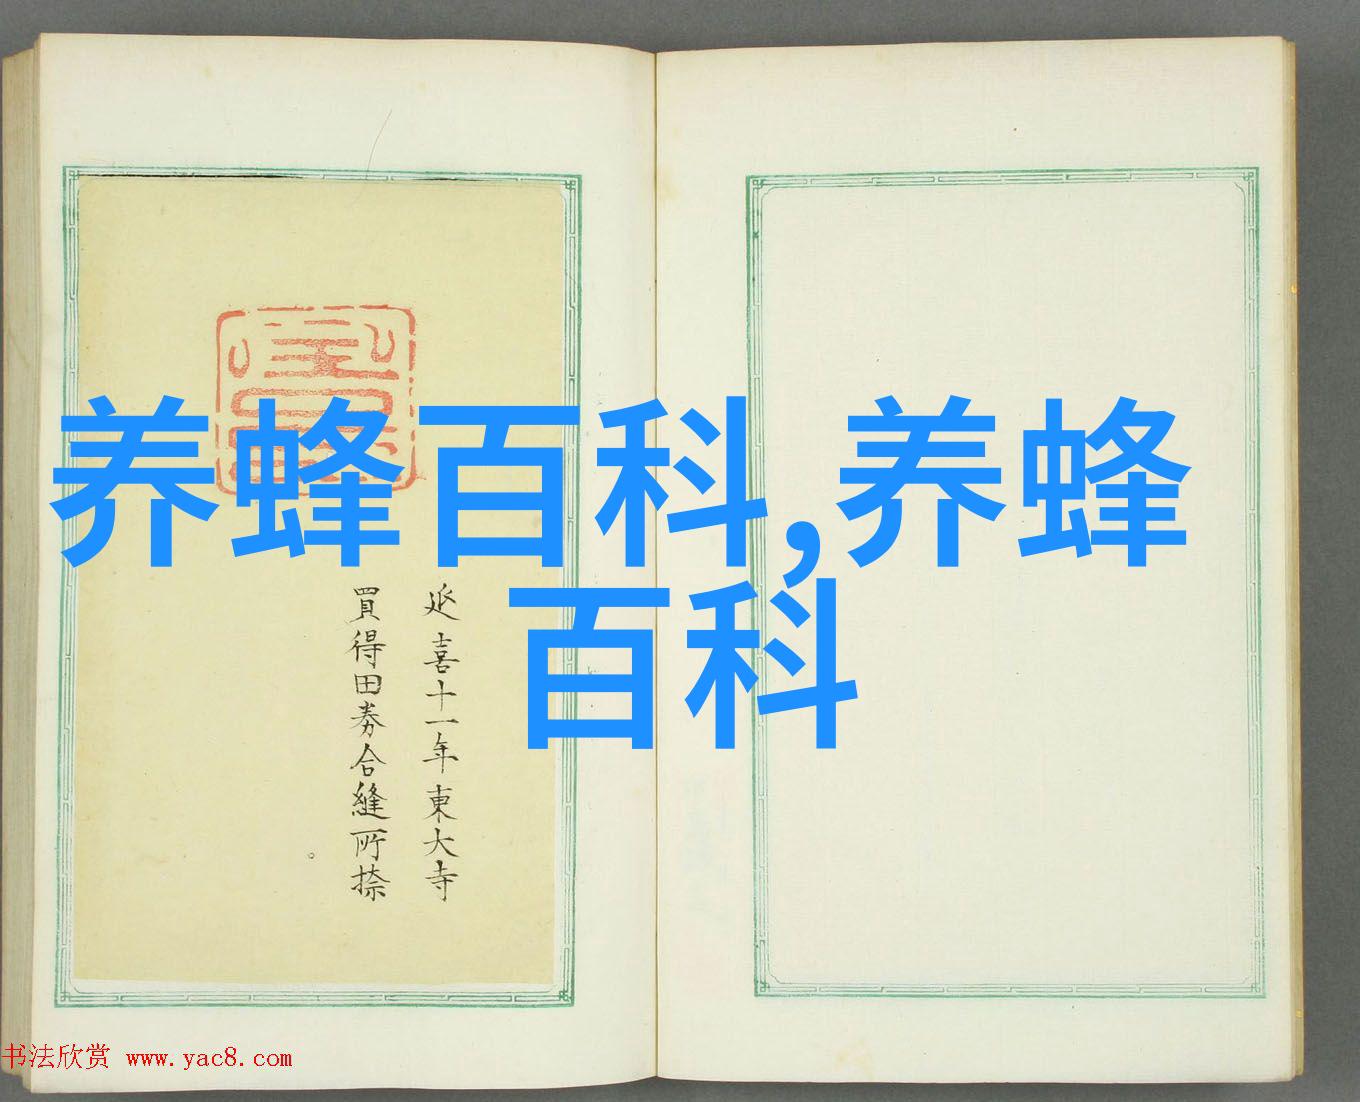 养蜂百科,养蜂
百科
延喜十一年東大寺
買得田券合縫所捺
书法欣赏 www.yac8.com